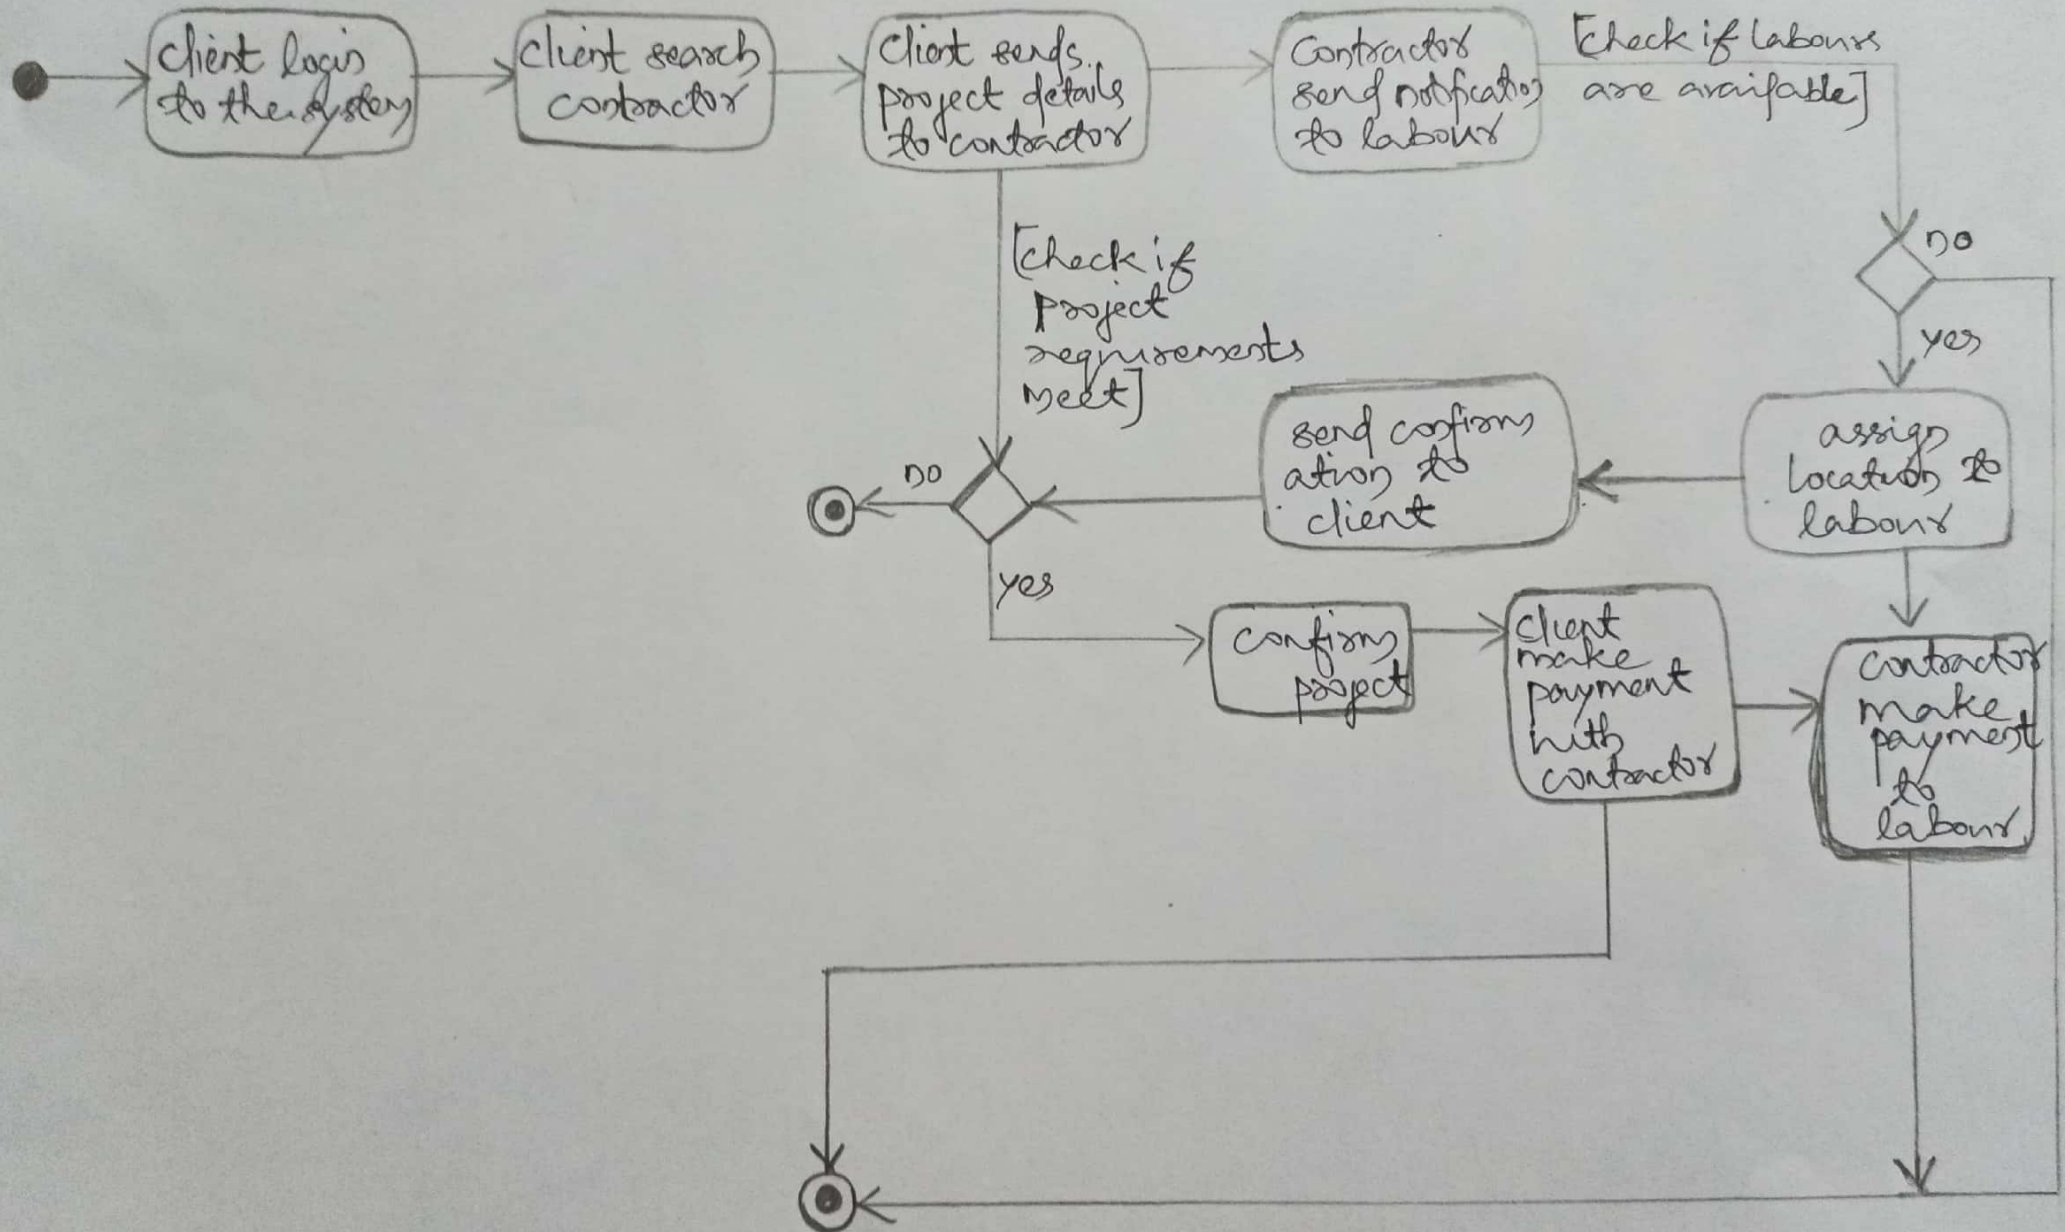 client login
to the system
client search
contractor
Client sends
project details
to contractor
Contractor
send notification
to labour
[check if labours
are available]
no
yes
[check if
project
requirements
meet]
no
yes
send confirm
ation to
client
assign
location to
labour
confirm
project
client
make
payment
with
contractor
contractor
make
payment
to
labour